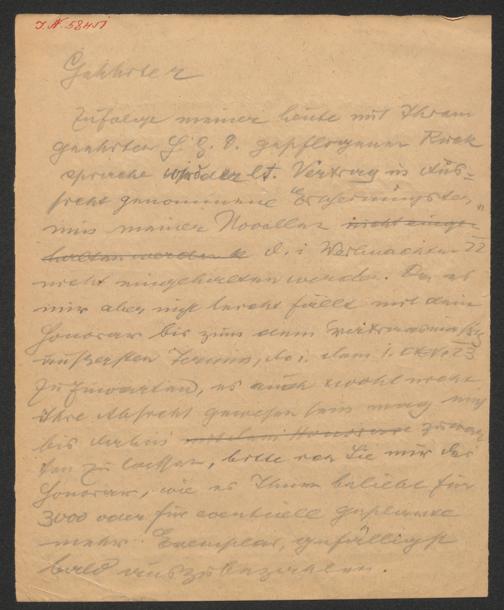 I.N. 58451
Geehrter
Zufolge meiner heute mit Ihrem
geehrten gepflogenen Rück
sprache wird der lt. Vertrag in Aus-
sicht genommene Erscheinungster„
min meiner Novellen nicht einge
halten werden d. i. Weihnachten 22
nicht eingehalten werden. Da es
mir aber nicht leicht fällt mit dem
Honorar bis zum dem vertragsmäßig
äußersten Termin, d. i. dem 1. 23
zuzuwarten, es auch wohl nicht
Ihre Absicht gewesen sein mag mich
bis dahin mit dem Honorar zuwar
ten zu lassen, bitte von Sie mir das
Honorar, wie es Ihnen beliebt für
3000 oder für eventuell geplante
mehr Exemplar, gefälligst
bald auszubezahlen.